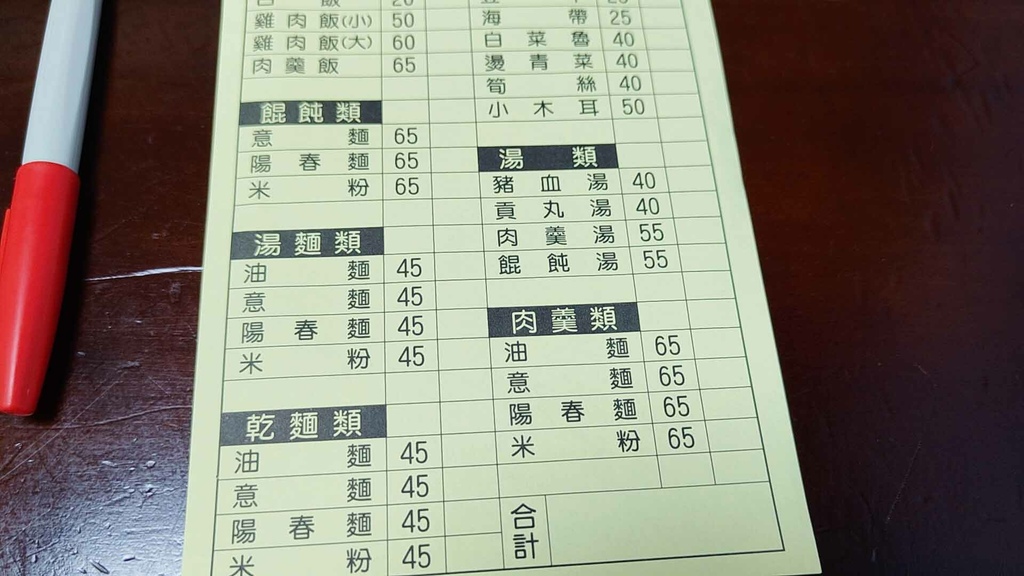 白飯 20
雞肉飯(小) 50
雞肉飯(大) 60
肉羹飯 65
餛飩類
意麵 65
陽春麵 65
米粉 65
湯麵類
油麵 45
意麵 45
陽春麵 45
米粉 45
乾麵類
油麵 45
意麵 45
陽春麵 45
米粉 45
海帶 25
白菜魯 40
燙青菜 40
筍絲 40
小木耳 50
湯類
豬血湯 40
貢丸湯 40
肉羹湯 55
餛飩湯 55
肉羹類
油麵 65
意麵 65
陽春麵 65
米粉 65
合計